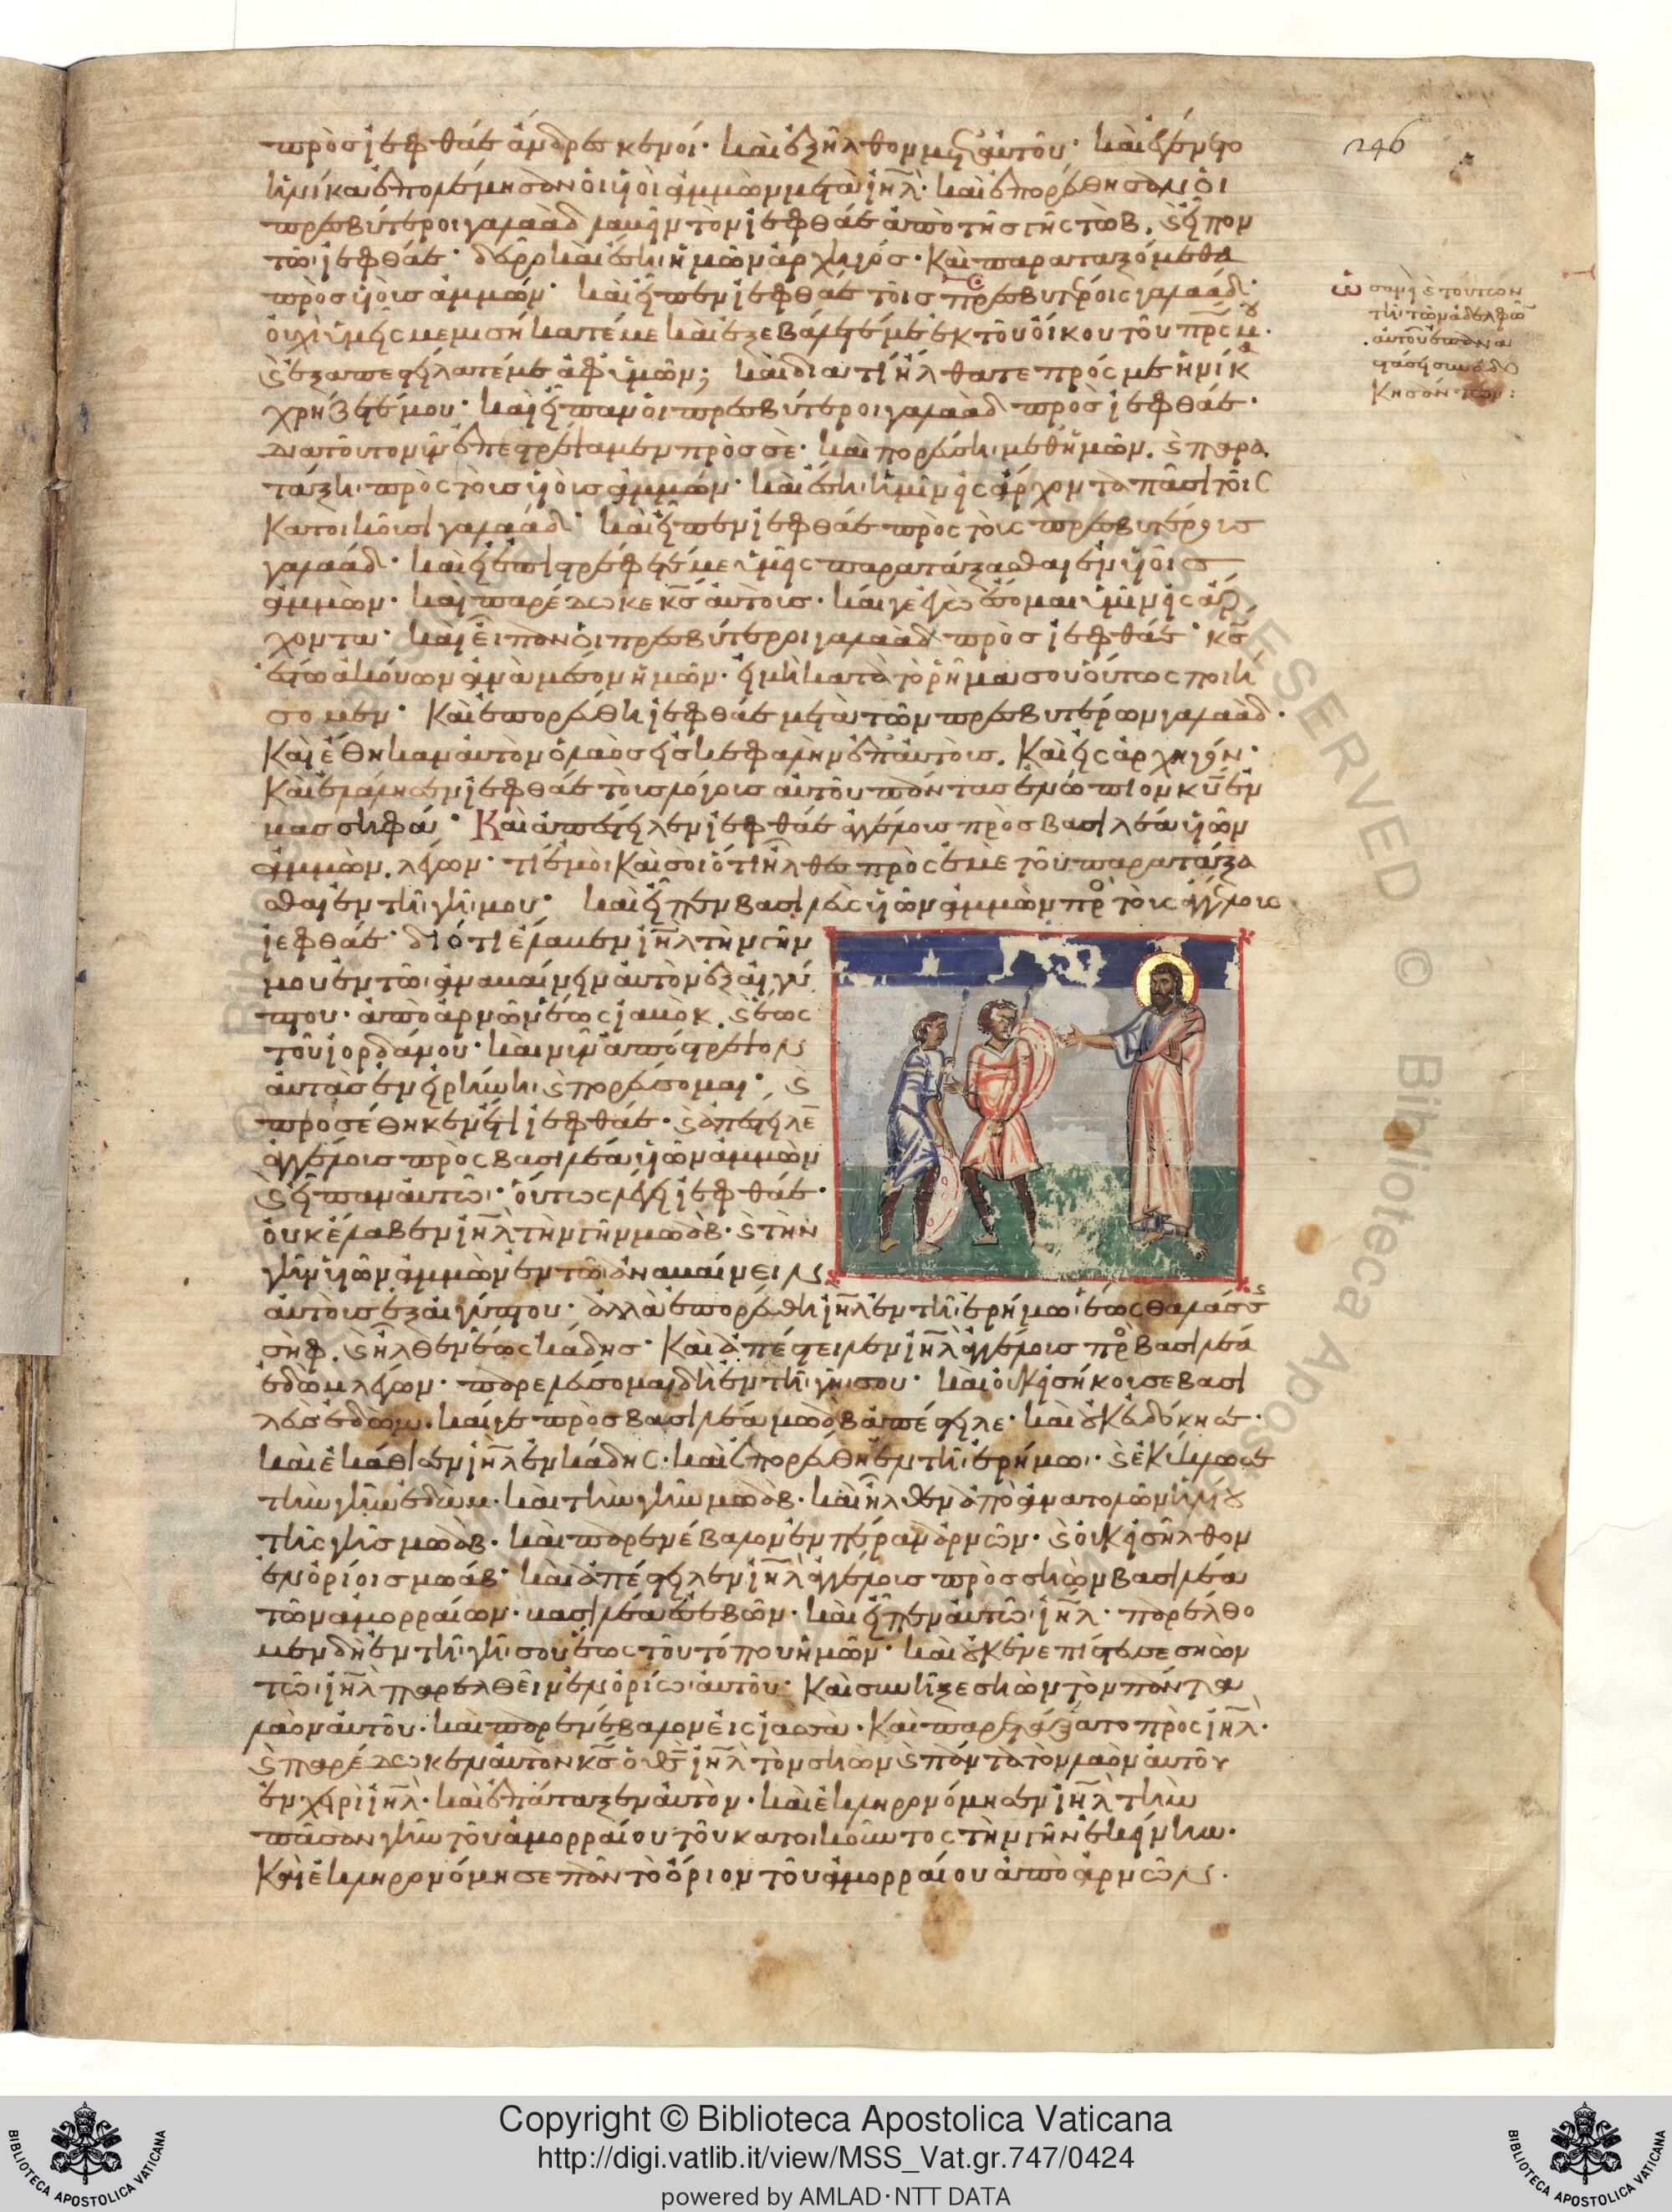 πρὸς ἰεφθάε ἄνδρες κενοί· καὶ ἐξῆλθον μετ' αὐτοῦ· καὶ ἐγένετο
ἡνίκα ἐπολέμησαν οἱ υἱοὶ ἀμμὼν μετὰ ιηλ· καὶ ἐπορεύθησαν οἱ
πρεσβύτεροι γαλαὰδ λαβεῖν τὸν ἰεφθάε ἀπὸ τῆς γῆς τὼβ. ϛ εἶπον
τῶ ἰεφθάε· δεῦρο καὶ ἔση ἡμῶν ἀρχηγός· Καὶ παραταξόμεθα
πρὸς υἱοὺς ἀμμών· καὶ εἶπεν ἰεφθάε τοῖς πρεσβυτέροις γαλαάδ·
οὐχὶ ὑμεῖς μεμισήκατέ με καὶ ἐξεβάλετέ με ἐκ τοῦ οἴκου τοῦ πρς μου·
ϛ ἐξαπεστείλατέ με ἀφ' ὑμῶν; καὶ διατί ἤλθατε πρός με ἡνίκα
χρήζετέ μου· καὶ εἶπαν οἱ πρεσβύτεροι γαλαὰδ πρὸς ἰεφθάε·
διατοῦτο νῦν ἐπεστρέψαμεν πρὸς σέ· καὶ πορεύση μεθ' ἡμῶν. ϛ παρα
τάξη πρὸς τοὺς υἱοὺς ἀμμών· καὶ ἔση ἡμῖν εἰς ἄρχοντα πᾶσι τοῖς
κατοικοῦσι γαλαάδ· καὶ εἶπεν ἰεφθάε πρὸς τοὺς πρεσβυτέρους
γαλαάδ· καὶ εἰ ἐπιστρέφετέ με ὑμεῖς παρατάξασθαι ἐν υἱοῖς
ἀμμών· καὶ παρέδωκε κς αὐτούς· καί γε ἐγὼ ἔσομαι ὑμῖν εἰς ἄρ
χοντα· καὶ εἶπον οἱ πρεσβύτεροι γαλαὰδ πρὸς ἰεφθάε· κς
ἔστω ἀκούων ἀνὰ μέσον ἡμῶν· εἰ μὴ κατὰ τὸ ῥῆμα σου οὕτως ποιή
σομεν· Καὶ ἐπορεύθη ἰεφθάε μετὰ τῶν πρεσβυτέρων γαλαάδ·
Καὶ ἔθηκαν αὐτὸν ὁ λαὸς εἰς κεφαλὴν ἐπ' αὐτούς. Καὶ εἰς ἀρχηγόν·
Καὶ ἐλάλησεν ἰεφθάε τοὺς λόγους αὐτοῦ πάντας ἐνώπιον κυ ἐν
μασσηφά· Καὶ ἀπέστειλεν ἰεφθάε ἀγγέλους πρὸς βασιλέα υἱῶν
ἀμμών. λέγων· τί ἐμοὶ καὶ σοὶ ὅτι ἦλθες πρὸς ἐμὲ τοῦ παρατάξα
σθαι ἐν τῆ γῆ μου· καὶ εἶπεν βασιλεὺς υἱῶν ἀμμὼν πρὸ τοὺς ἀγγέλους
ἰεφθάε· διότι ἔλαβεν ιηλ τὴν γῆν
μου ἐν τῶ ἀναβαίνειν αὐτὸν ἐξ αἰγύ
πτου· ἀπὸ ἀρνῶν ἕως ἰαβόκ. ϛ ἕως
τοῦ ἰορδάνου· καὶ νῦν ἀπόστρεψον
αὐτὰς ἐν εἰρήνη ϛ πορεύσομαι· ϛ
προσέθηκεν ἔτι ἰεφθάε· ϛ ἀπέστειλε
ἀγγέλους πρὸς βασιλέα υἱῶν ἀμμὼν
ϛ εἶπαν αὐτῶ· οὕτως λέγει ἰεφθάε·
οὐκ ἔλαβεν ιηλ τὴν γῆν μωάβ· ϛ τὴν
γῆν υἱῶν ἀμμὼν ἐν τῶ ἀναβαίνειν
αὐτοὺς ἐξ αἰγύπτου· ἀλλὰ ἐπορεύθη ιηλ ἐν τῆ ἐρήμω ἕως θαλάσσς
σὴφ. ϛ ἦλθεν ἕως κάδης· Καὶ ἀπέστειλεν ιηλ ἀγγέλους πρὸ βασιλέα
ἐδὼμ λέγων· παρελεύσομαι δὴ ἐν τῆ γῆ σου· καὶ οὐκ εἰσήκουσε βασι
λεὺς ἐδώμ. καί γε πρὸς βασιλέα μωὰβ ἀπέστειλε· καὶ οὐκ εὐδόκησε·
καὶ ἐκάθισεν ιηλ ἐν κάδης· καὶ ἐπορεύθη ἐν τῆ ἐρήμω· ϛ ἐκύκλωσε
τὴν γῆν ἐδώμ· καὶ τὴν γῆν μωάβ· καὶ ἦλθεν ἀπὸ ἀνατολῶν ἡλίου
τῆς γῆς μωάβ· καὶ παρενέβαλον ἐν πέραν ἀρνῶν· ϛ οὐκ εἰσῆλθον
ἐν ὁρίοις μωάβ· καὶ ἀπέστειλεν ιηλ ἀγγέλους πρὸς σηὼν βασιλέα
τῶν ἀμορραίων· βασιλέα ἐσεβῶν· καὶ εἶπεν αὐτῶ ιηλ· παρελθο
μεν δὴ ἐν τῆ γῆ σου ἕως τοῦ τόπου ἡμῶν· καὶ οὐκ ἐνεπίστευσε σηὼν
τῶ ιηλ παρελθεῖν ἐν ὁρίω αὐτοῦ· Καὶ συνῆξε σηὼν τὸν πάντα
λαὸν αὐτοῦ· καὶ παρενέβαλον εἰς ἰασσά· Καὶ παρετάξατο πρὸς ιηλ·
ϛ παρέδωκεν αὐτὸν κς ὁ θς ιηλ τὸν σηὼν ϛ πάντα τὸν λαὸν αὐτοῦ
ἐν χειρὶ ιηλ· καὶ ἐπάταξεν αὐτόν· καὶ ἐκληρονόμησεν ιηλ τὴν
πᾶσαν γῆν τοῦ ἀμορραίου τοῦ κατοικοῦντος τὴν γῆν ἐκείνην·
Καὶ ἐκληρονόμησε πᾶν τὸ ὅριον τοῦ ἀμορραίου ἀπὸ ἀρνῶν·
246
Copyright © Biblioteca Apostolica Vaticana
http://digi.vatlib.it/view/MSS_Vat.gr.747/0424
powered by AMLAD·NTT DATA
BIBLIOTECA APOSTOLICA VATICANA
BIBLIOTECA APOSTOLICA VATICANA